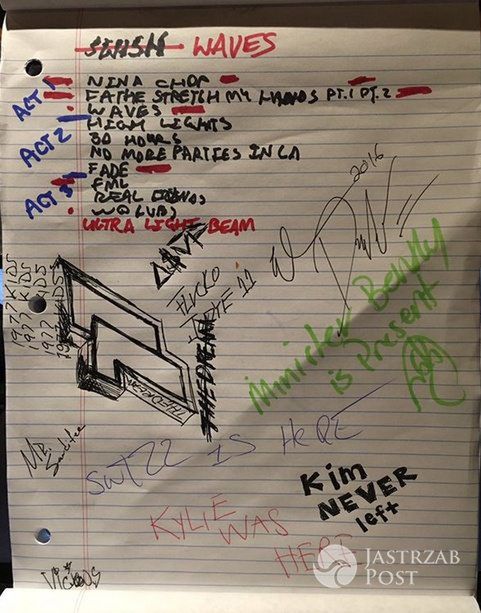 SWISH WAVES
ACT 1
NINA CHOP
FATHE STRETCH MY HANDS PT.1 PT.2
WAVES
ACT 2
HIGH LIGHTS
30 HOURS
NO MORE PARTIES IN LA
ACT 3
FADE
FML
REAL FRIENDS
WOLVES
ULTRA LIGHT BEAM
2016
A$AP
FLVCKO
THEDREAM
THEDREAM
1977 KIDS
1977 KIDS
1977 KIDS
1977 KIDS
Minister Bently
is Present
Mr.
Swizz is HERE
Kim
NEVER
left
KYLIE
WAS
HERE
JASTRZAB
POST